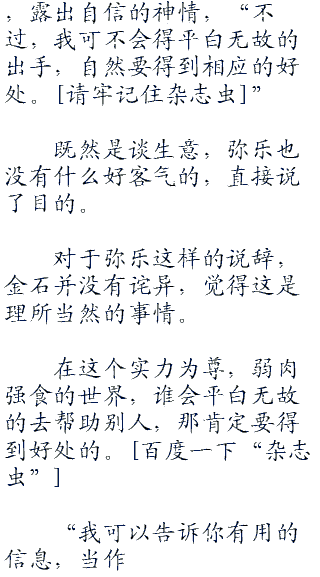 ，露出自信的神情，“不
过，我可不会得平白无故的
出手，自然要得到相应的好
处。[请牢记住杂志虫]”
既然是谈生意，弥乐也
没有什么好客气的，直接说
了目的。
对于弥乐这样的说辞，
金石并没有诧异，觉得这是
理所当然的事情。
在这个实力为尊，弱肉
强食的世界，谁会平白无故
的去帮助别人，那肯定要得
到好处的。[百度一下“杂志
虫”]
“我可以告诉你有用的
信息，当作